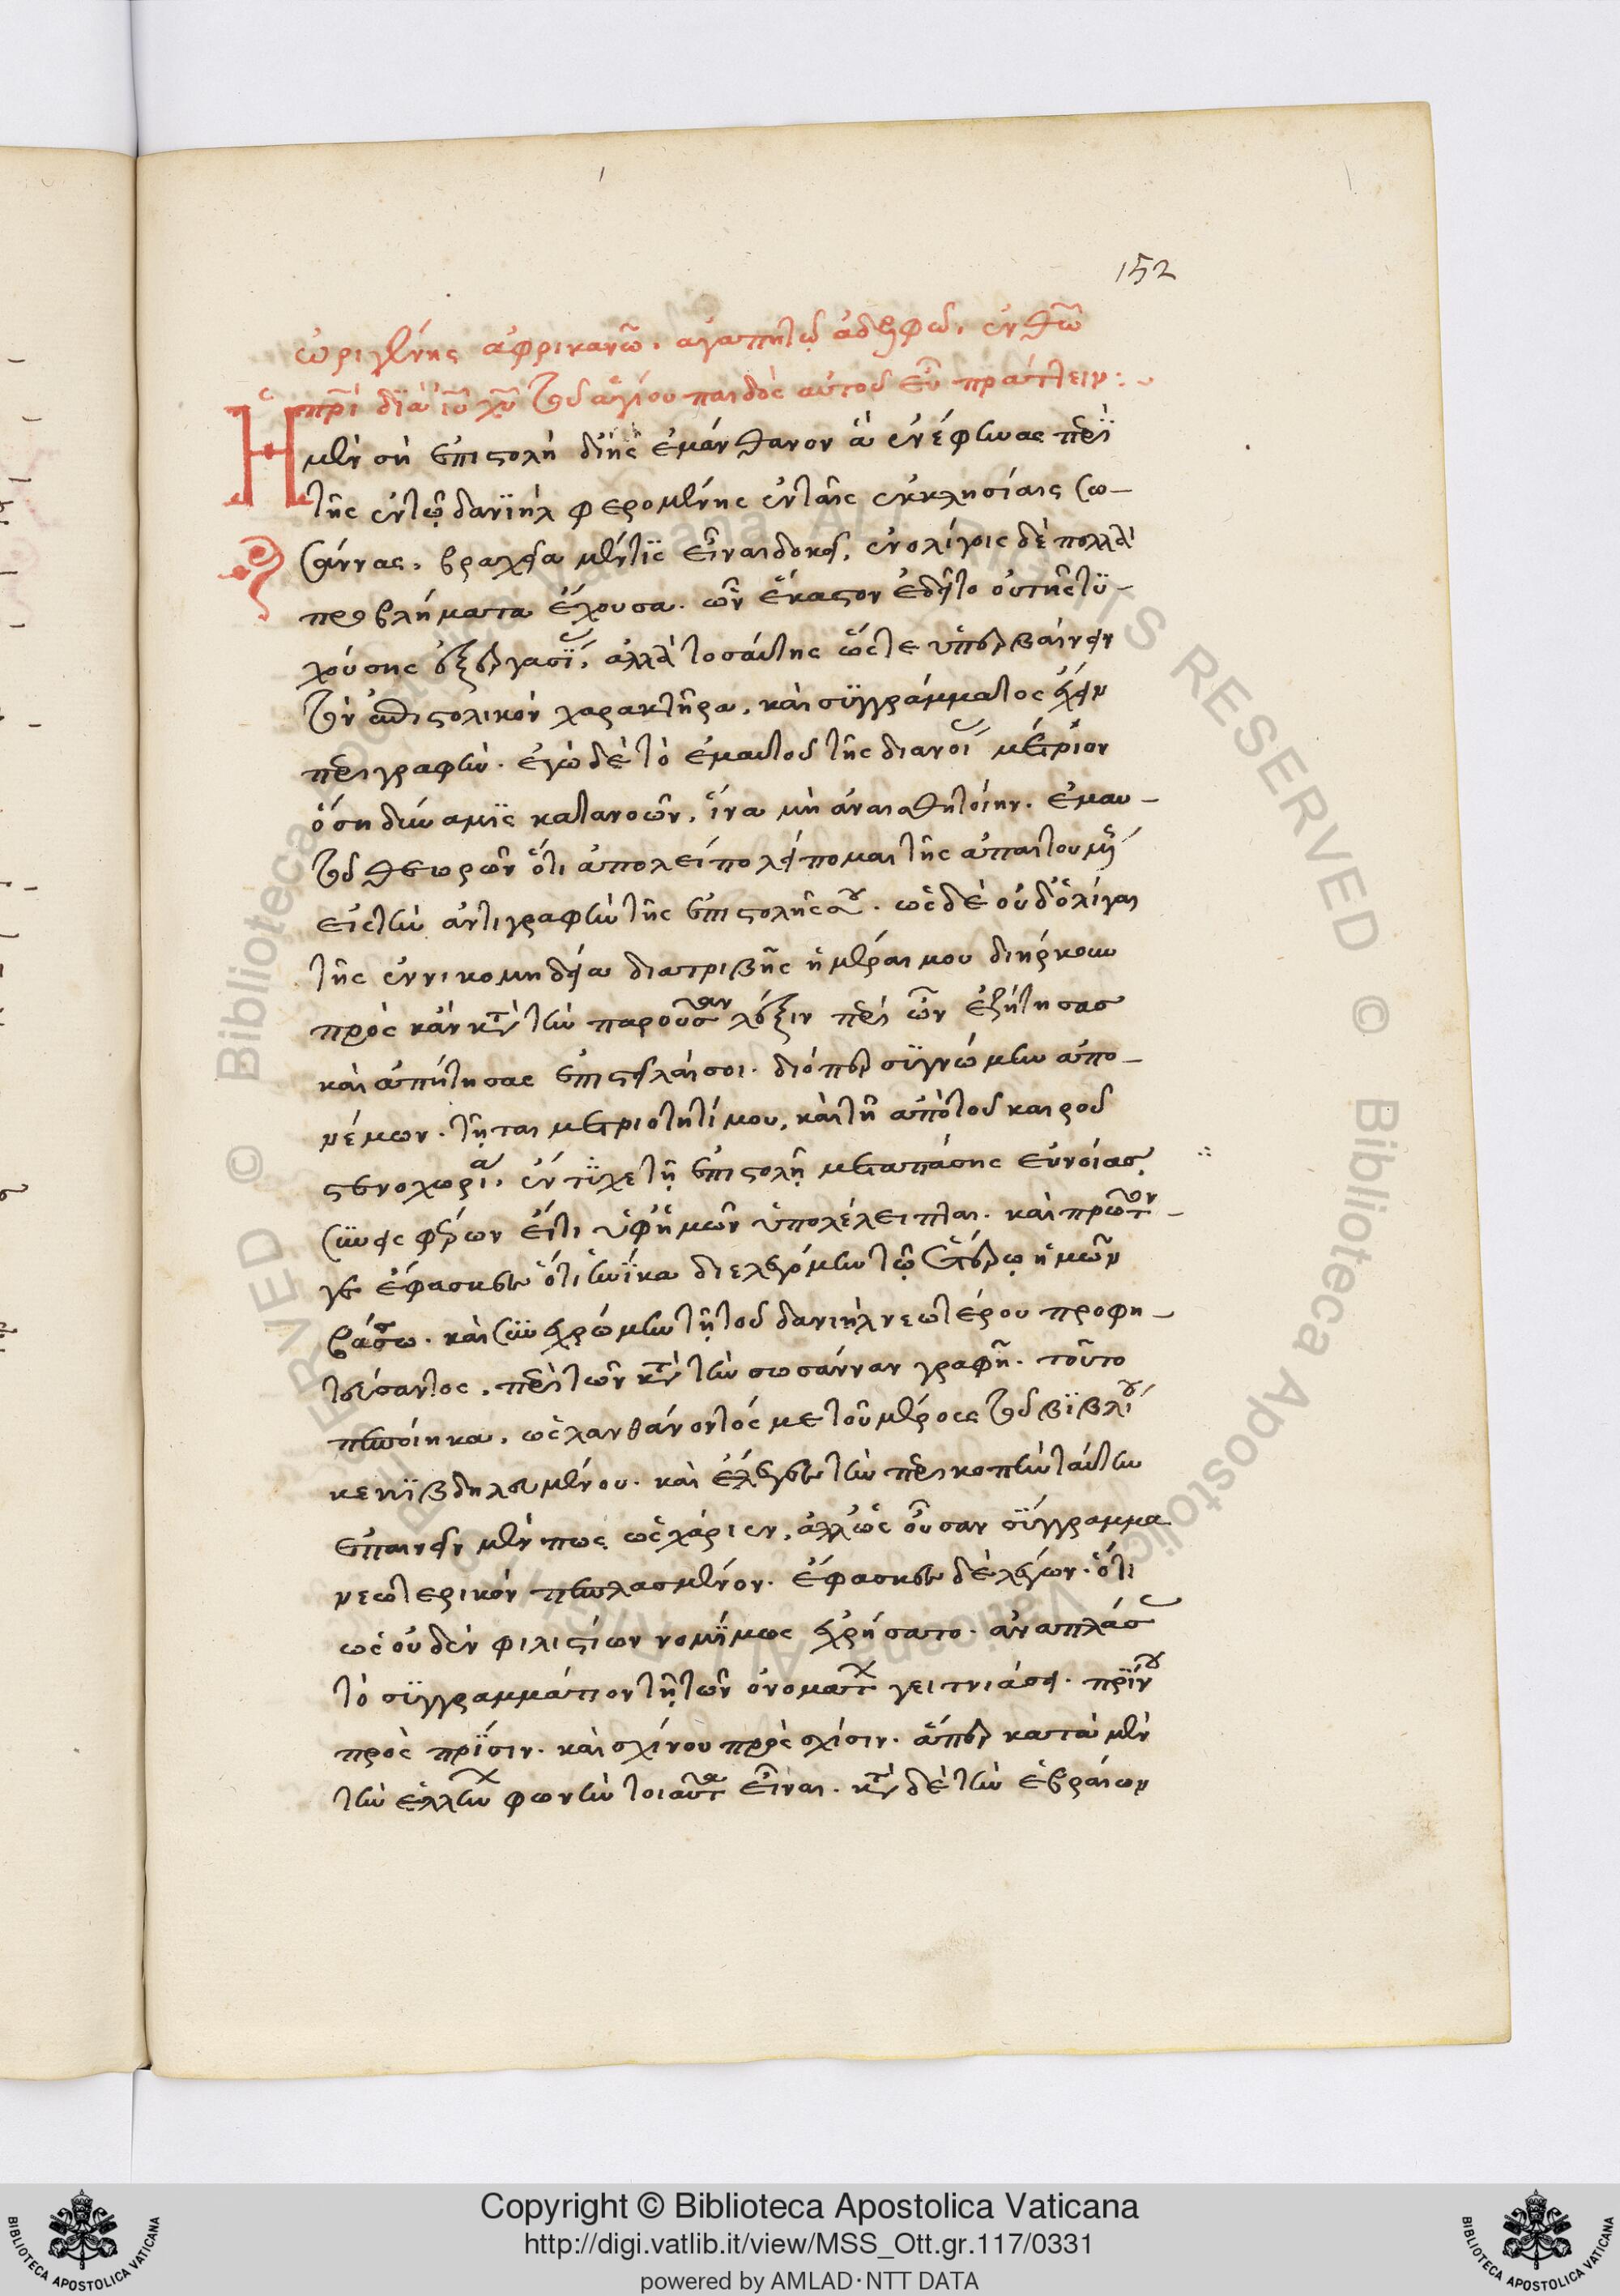 152
ὠριγένης ἀφρικανῶ. ἀγαπητῷ ἀδελφῶ. ἐν θῶ
πρὶ διὰ ἰῦ χῦ τοῦ ἁγίου παιδὸς αὐτοῦ εὖ πράττειν:
Ἡ μὲν σὴ ἐπιστολὴ δι' ἧς ἐμάνθανον ἃ ἐνέφηνας περὶ
τῆς ἐν τῷ δανϊὴλ φερομένης ἐν ταῖς ἐκκλησίαις σω-
σάννας, βραχεῖα μέν τϊς εἶναι δοκεῖ, ἐν ὀλίγοις δὲ πολλὰ
προβλήματα ἔχουσα. ὧν ἕκαστον ἐδεῖτο οὐ τῆς τϋ-
χούσης ἐξεργασϊ, ἀλλὰ τοσαύτης ὥστε ὑπερβαίνειν
τὸν ἐπιστολικὸν χαρακτῆρα, καὶ συγγράμματος ἔχειν
περιγραφὴν. ἐγὼ δὲ τὸ ἐμαυτοῦ τῆς διανοί μέτριον
ὅση δύναμϊς κατανοῶν, ἵνα μὴ ἀναισθητοίην. ἐμαυ-
τοῦ θεωρῶν ὅτι ἀπολείπο λείπομαι τῆς ἀπαιτουμέ
εἰς τὴν ἀντιγραφὴν τῆς ἐπιστολῆς σου. ὡς δὲ οὐδ' ὀλίγαι
τῆς ἐν νικομηδεία διατριβῆς ἡμέραι μου διήρκουν
πρὸς κἂν κατὰ τὴν παροῦσαν λέξιν περὶ ὧν ἐζήτησας
καὶ ἀπήτησας ἐπιστεῖλαί σοι. διόπερ συγνώμην ἀπο-
νέμων. τῇ ται μετριοτητί μου, καὶ τῇ ἀπὸ τοῦ καιροῦ
στενοχωρία, ἐντύχε τῇ ἐπιστολῇ μετὰ πάσης εὐνοίας
συνεισφέρων εἴ τι ὑφ' ἡμῶν ὑπολέλειπται. καὶ πρῶτόν -
γε ἔφασκες ὅτι ἡνίκα διελεγόμην τῷ ἑτέρῳ ἡμῶν
βάσσω. καὶ συνεχρώμην τῇ τοῦ δανιὴλ νεωτέρου προφη-
τεύσαντος, περὶ τῶν κατὰ τὴν σωσάνναν γραφῇ. τοῦτο
πεποίηκα, ὡς λανθάνοντός με τοῦ μέρους τοῦ βϊβλίου
κεκϊβδηλευμένου. καὶ ἔλεγες τὴν περικοπὴν ταύτην
ἐπαινεῖν μέν πως ὡς χάριεν, ἀλλ' ὡς οὖσαν σύγγραμμα
νεωτερικὸν πεπλασμένον. ἔφασκες δὲ λέγων. ὅτι
ὡς οὐδὲν φιλιστίων νομϊμως ἐχρήσατο. ἀναπλάσ
τὸ συγγραμμάτιον τῇ τῶν ὀνομάτων γειτνιάσει. πρΐνου
πρὸς πρΐσιν. καὶ σχίνου πρὸς σχίσιν. ἅπερ κατὰ μὲν
τὴν ἑλλήνων φωνὴν τοιαῦτα εἶναι. κατὰ δὲ τὴν ἑβραίων
Copyright © Biblioteca Apostolica Vaticana
http://digi.vatlib.it/view/MSS_Ott.gr.117/0331
powered by AMLAD·NTT DATA